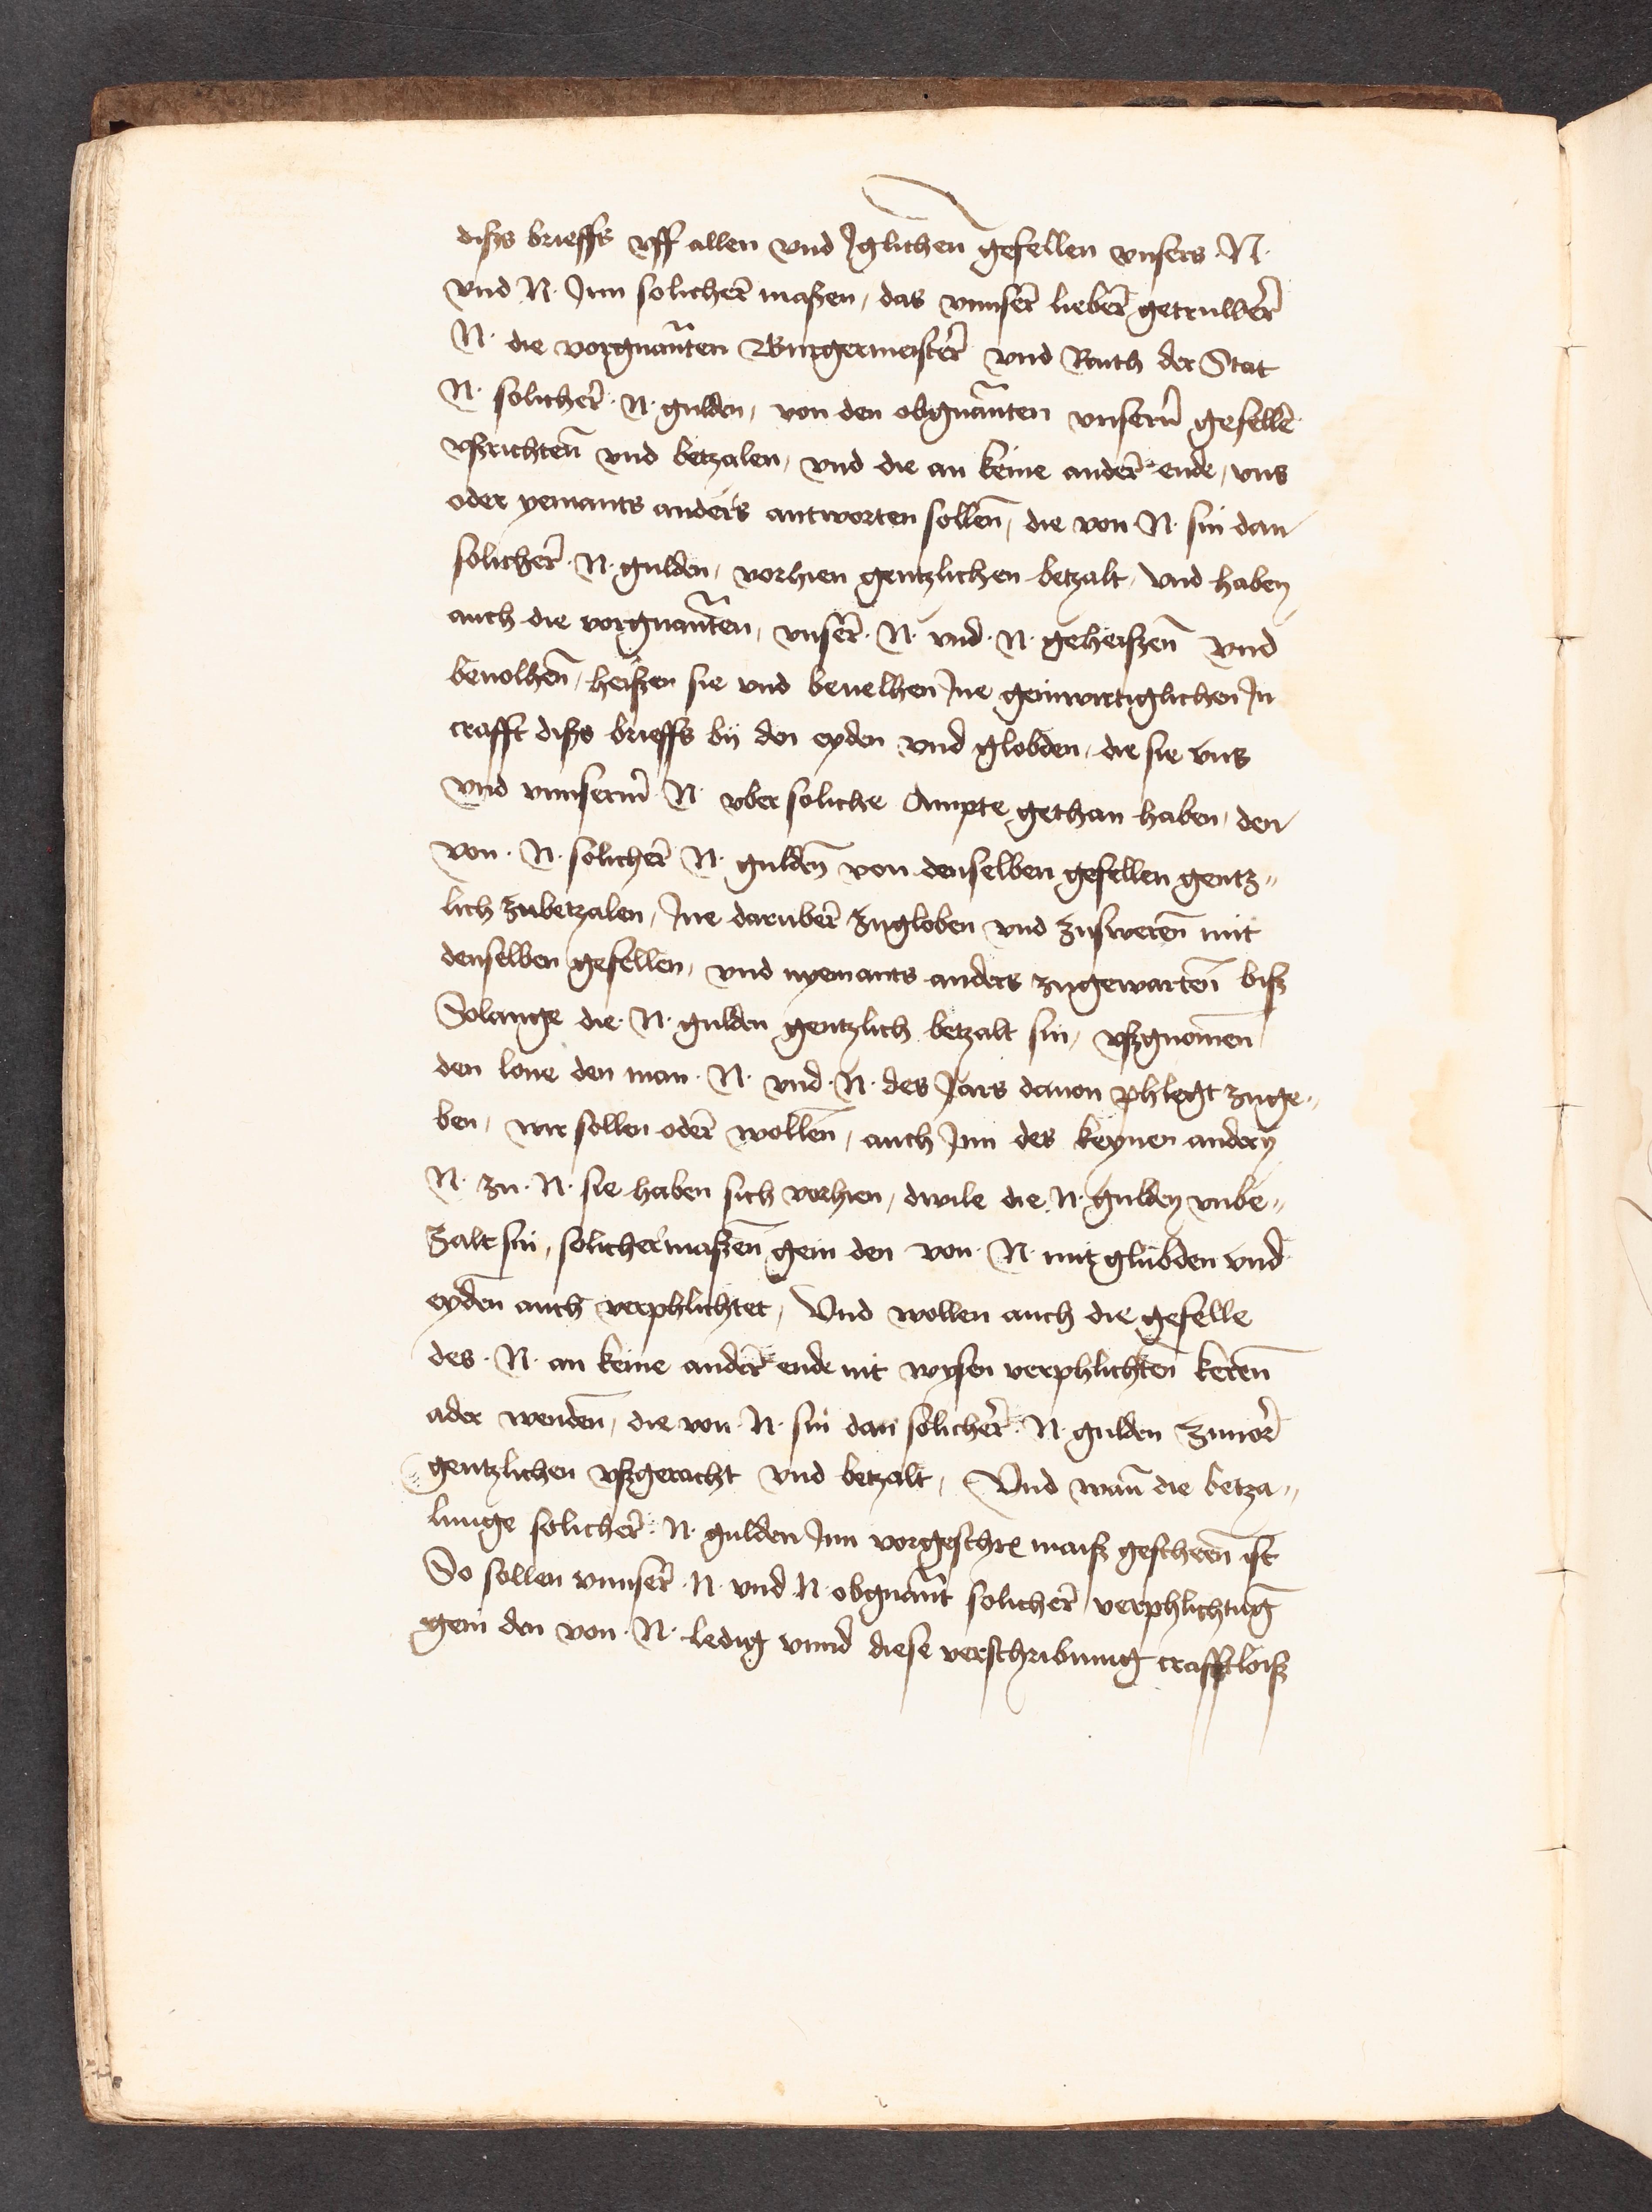 diſzs brieffs vff allen vnd Jglichen̄ gefellen vnſers N·
vnd N· Jnn ſolicher maſzen, das vnnſer lieber getruwer
N· die vorgnan̄ten Burgermeiſter vnd Rath der Stat
N· ſolicher N· gulden, von den obgnan̄ten vnſern̄ gefelle
vſzrichten̄ vnd betzalen, vnd die an keine ander ende, vns
oder yemants anders antworten ſollen̄, die von N· ſin dan
ſolicher· N· gulden, vorhien gentzlichen betzalt, vnd haben
auch die vorgnan̄ten, vnſer· N· vnd· N· geheiſzen̄ vnd
beuolhen̄, heiſzen ſie vnd beuelhen Jne geinwirtiglichen Jn
crafft diſzs brieffs bij den eyden vnd globden, die ſie vns
vnd vnnſerm̄ N· vber ſoliche Ampte gethan haben, den
von· N· ſolicher N· gulden von denſelben gefellen gentz„
lich zubetzalen, Jne daruber zugloben vnd zuſweren̄ mit
denſelben gefellen, vnd nyemants anders zugewarten̄ biſz
Solange die· N· gulden gentzlich betzalt ſin, vſzgnomen̄
den lone den man· N· vnd· N· des Jars dauon phlegt zuge„
ben, wir ſollen oder wollen̄, auch Jnn des keynen andern
N· zu· N· ſie haben ſich vorhien, dwile die N· gulden vnbe„
zalt ſin, ſolichermaſzen̄ gein den von· N· mit glubden vnd
eyden̄ auch verphlichtet, Vnd wollen auch die gefelle
des· N· an keine ander ende nit wyſen verphlichten̄ keren̄
ader wenden̄, die von N· ſin dan ſolicher· N· gulden zuuor
gentzlichen vſzgeracht vnd betzalt, Vnd wan̄ die betza„
lunge ſolicher· N· gulden Jnn vorgeſchr maiſz geſcheen̄ iſt
So ſollen vnnſer· N· vnd N· obgnan̄t ſolicher verphlichtuḡ
gein den von· N· ledig vnnd dieſe verſchribunng crafftloiſz